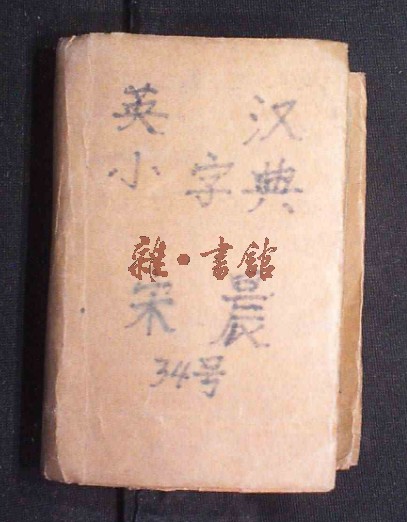 英 汉
小 字典
雜·書館
宋 晨
34号